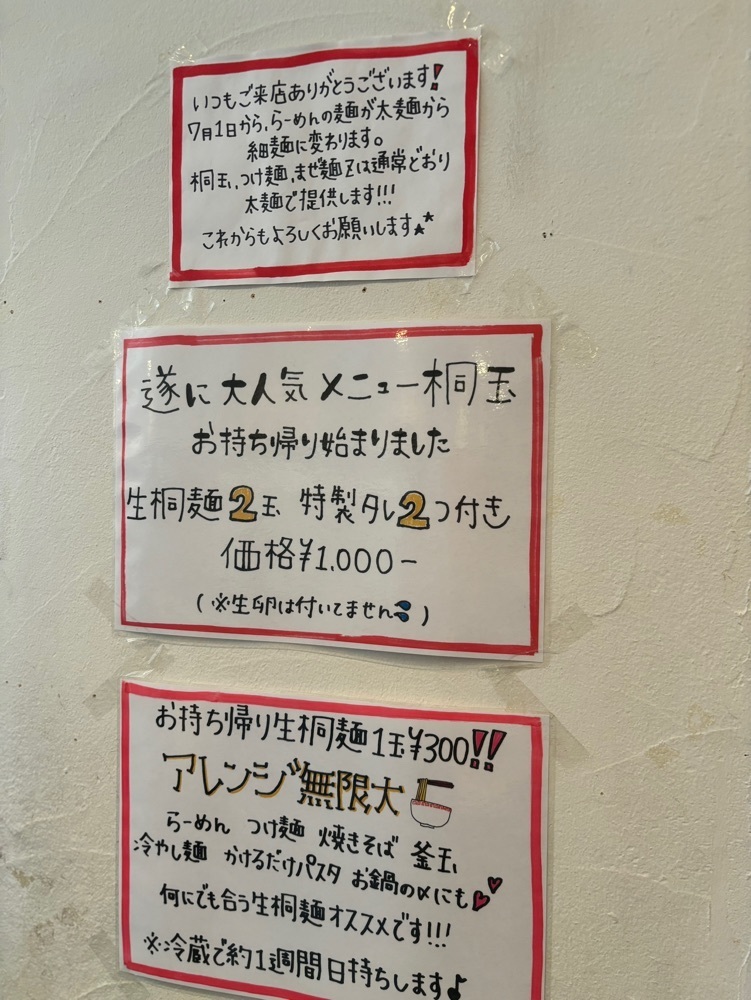 いつもご来店ありがとうございます!
7月1日から、らーめんの麺が太麺から
細麺に変わります。
桐玉、つけ麺、まぜ麺Zは通常どおり
太麺で提供します!!!
これからもよろしくお願いします★★
遂に大人気メニュー桐玉
お持ち帰り始まりました
生桐麺2玉 特製タレ2つ付き
価格¥1,000-
(※生卵は付いてません💦)
お持ち帰り生桐麺1玉¥300!!
アレンジ無限大
らーめん つけ麺 焼きそば 釜玉
冷やし麺 かけるだけパスタ お鍋の〆にも♥♥
何にでも合う生桐麺オススメです!!!
※冷蔵で約1週間日持ちします♪